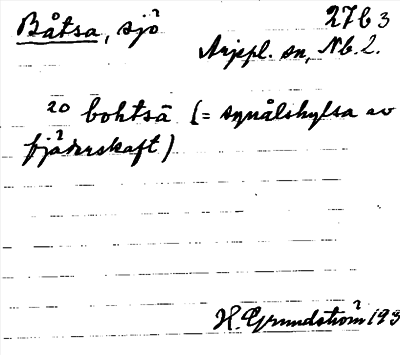 Båtsa, sjö 27b3
Arjepl. sn, Nb. 2.
20 bohtsā (= synålshylsa av
fjäderskaft)
H. Grundström 193